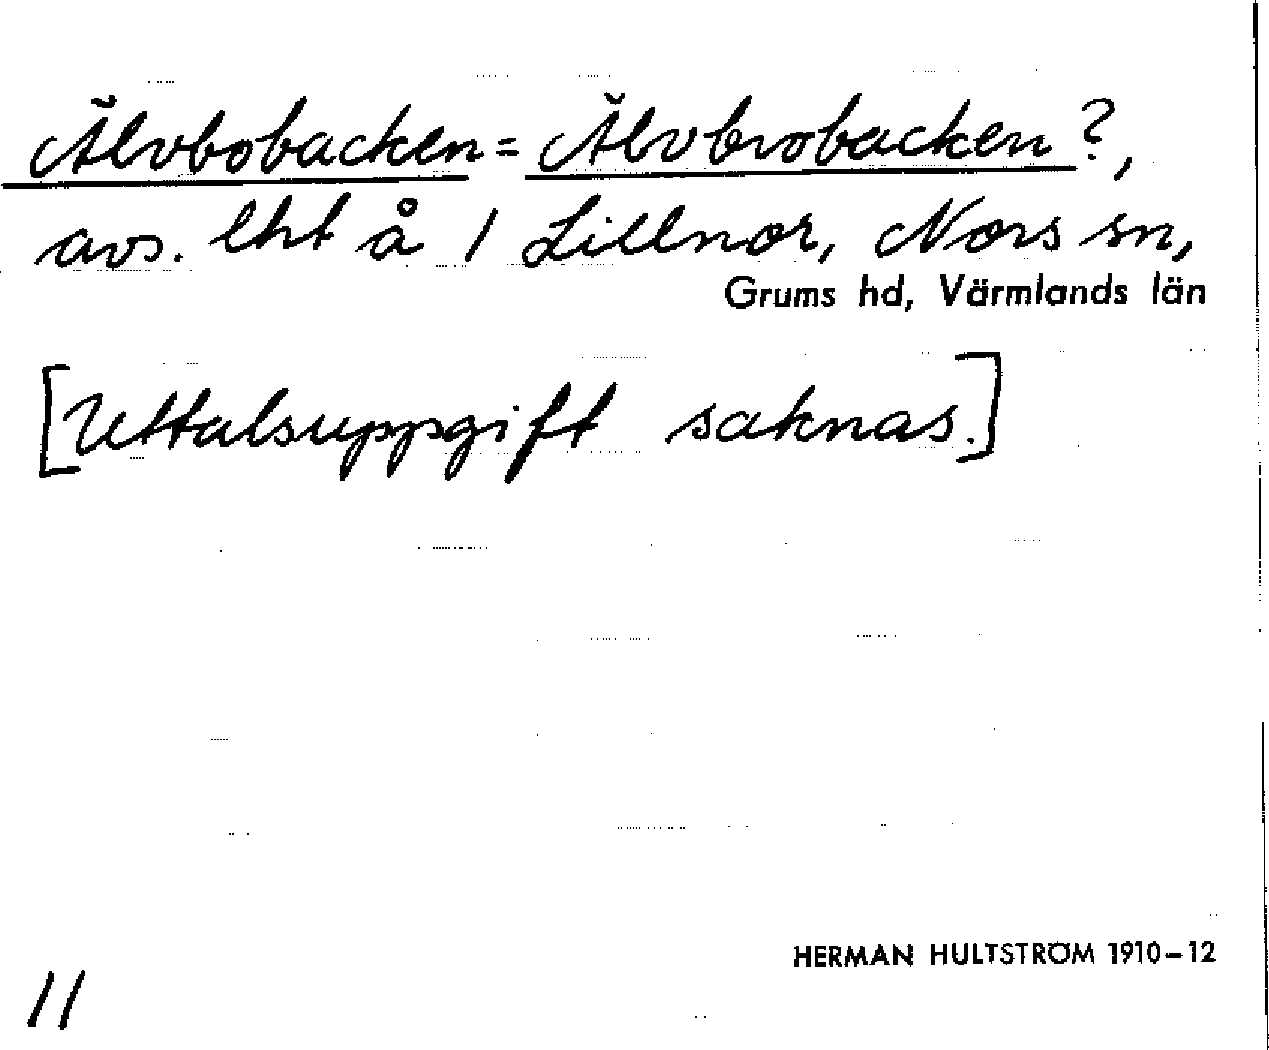 Älvbobacken = Älvbrobacken?,
avs. lht å 1 Lillnor, Nors sn,
Grums hd, Värmlands län
[Uttalsuppgift saknas.]
HERMAN HULTSTRÖM 1910-12
11